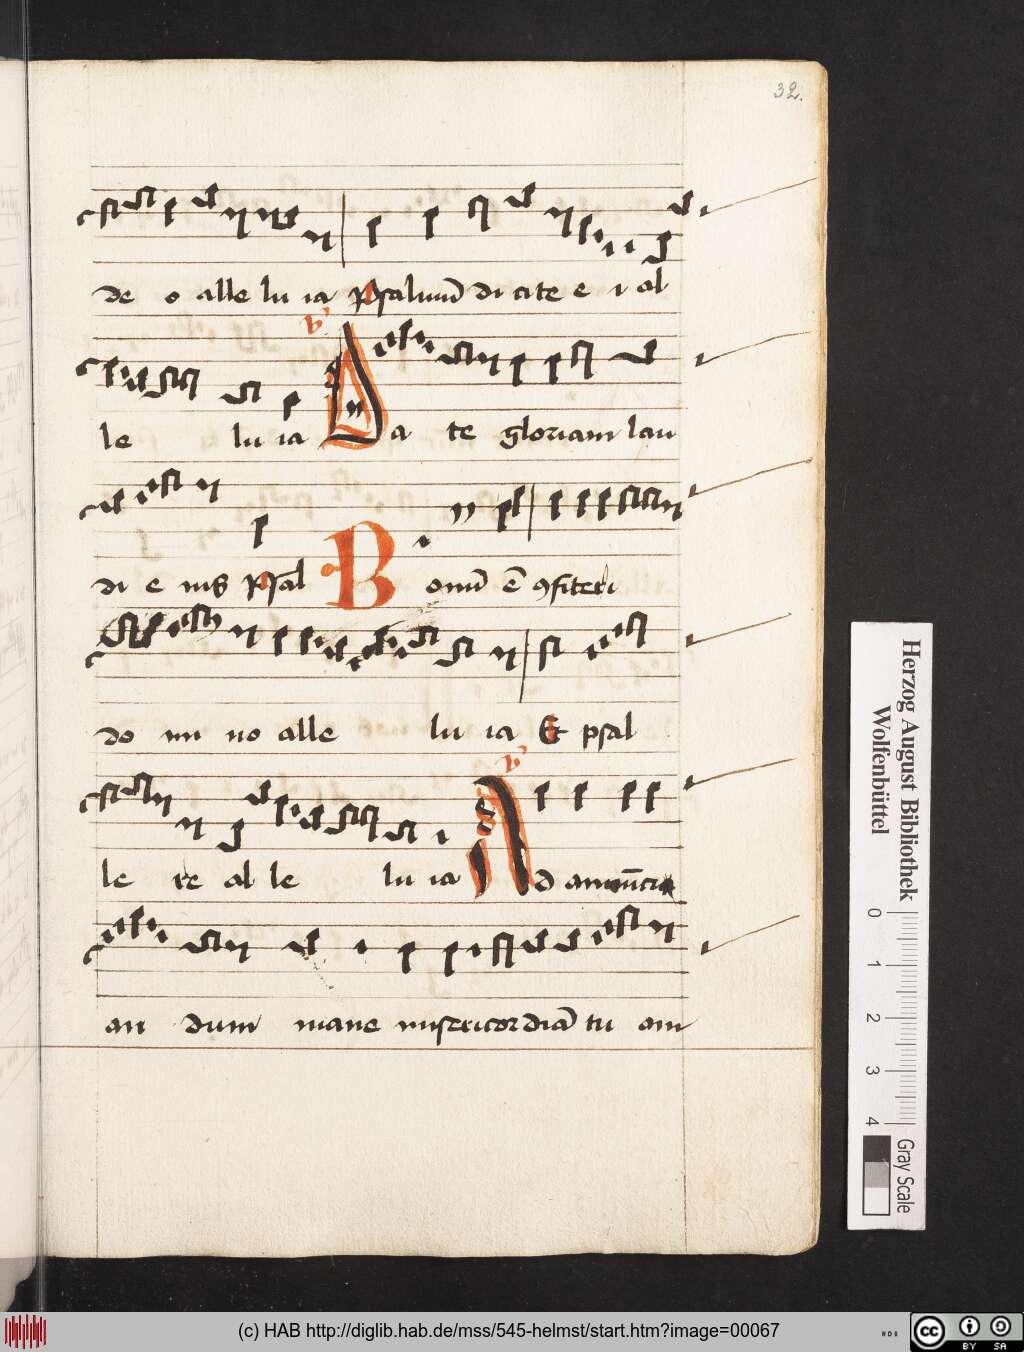 32.
de o alle lu ia Psalmū dicite e i al
v̓
le lu ia Da te gloriam lau
di e ius Psal Bonū ē ꝯfiteri
do mi no alle lu ia Et psal
v̓
le re al le lu ia Ad annūcia
an dum mane misericordiā tu am
Herzog August Bibliothek
Wolfenbüttel
0 1 2 3 4
Gray Scale
(c) HAB http://diglib.hab.de/mss/545-helmst/start.htm?image=00067
cc BY SA